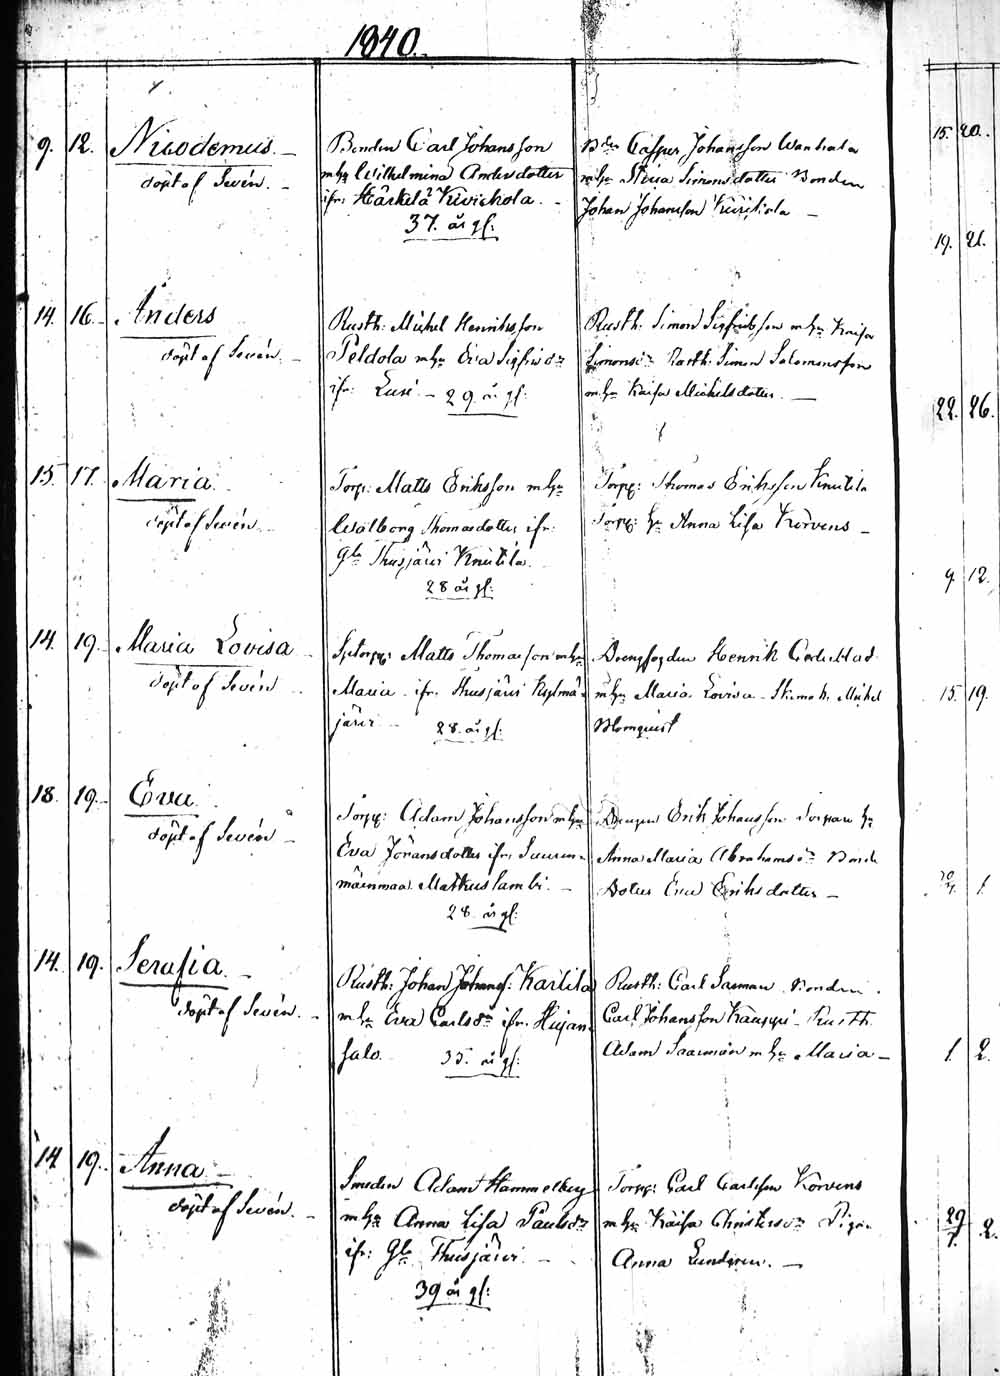 1840.
9. 12. Nicodemus. –
döpt af Sevén. –
Bonden Carl Johansson
m hu Wilhelmina Andersdotter
ifr: Härkälä Kuvickola. –
37. år gl:
Bdn Casper Johansson
m hu Stina Simonsdotter Bonden
Johan Johansson –
14. 16. Anders
döpt af Sevén. –
Rusth: Michel Henriksson
Peldola m hu Eva Sigfridsdr
ifr: Lusi. – 29 år gl:
Rusth: Simon Sigfridsson m hu Kaisa
Simonsdr Rusth: Simon Salomonsson
m hu Kaisa Michelsdotter. –
15. 17. Maria.
döpt af Sevén.
Torp: Matts Eriksson m hu
Walborg Thomasdotter ifr:
Gla Thusjärvi Knutila.
28 år gl:
Torpp: Thomas Eriksson Knutila
Torpp: hu Anna Lisa Körvens –
14. 19. Maria Lovisa
döpt af Sevén
Matts Thomasson m hu
Maria ifr. Thusjärvi Kylmä-
järvi – 28. år gl:
Drengfogden Henrik
m hu Maria Lovisa Michel
Blomquist
18. 19. Eva.
döpt af Sevén –
Torpp: Adam Johansson m hu
Eva Jöransdotter ifr: Suuren-
mäenmaa Matkuslambi. –
28. år gl:
Drengen Erik Johansson Torpare hu
Anna Maria Abrahamsdr Bonde
Doter Eva Eriksdotter –
14. 19. Serafia. –
döpt af Sevén. –
Rusth: Johan Johansf: Karlila
m hu Eva Carlsdr ifr. Hujan-
salo. 35. år gl:
Rusth: Carl Saxman Bonden
Carl Johansson Kauppi – Rusth.
Adam Saarman m hu Maria –
14. 19. Anna –
döpt af Sevén. –
Smeden Adam Hammelberg
m hu Anna Lisa Paulsdr
ifr: Gla Thusjärvi. –
39 år gl:
Torpp: Carl Carlsson Körvens
m hu Kaisa Christersdr Pigan
Anna Lundgren. –
15. 20.
19. 21.
22. 26.
9. 12.
15. 19.
1.
1. 2.
29/7. 2.